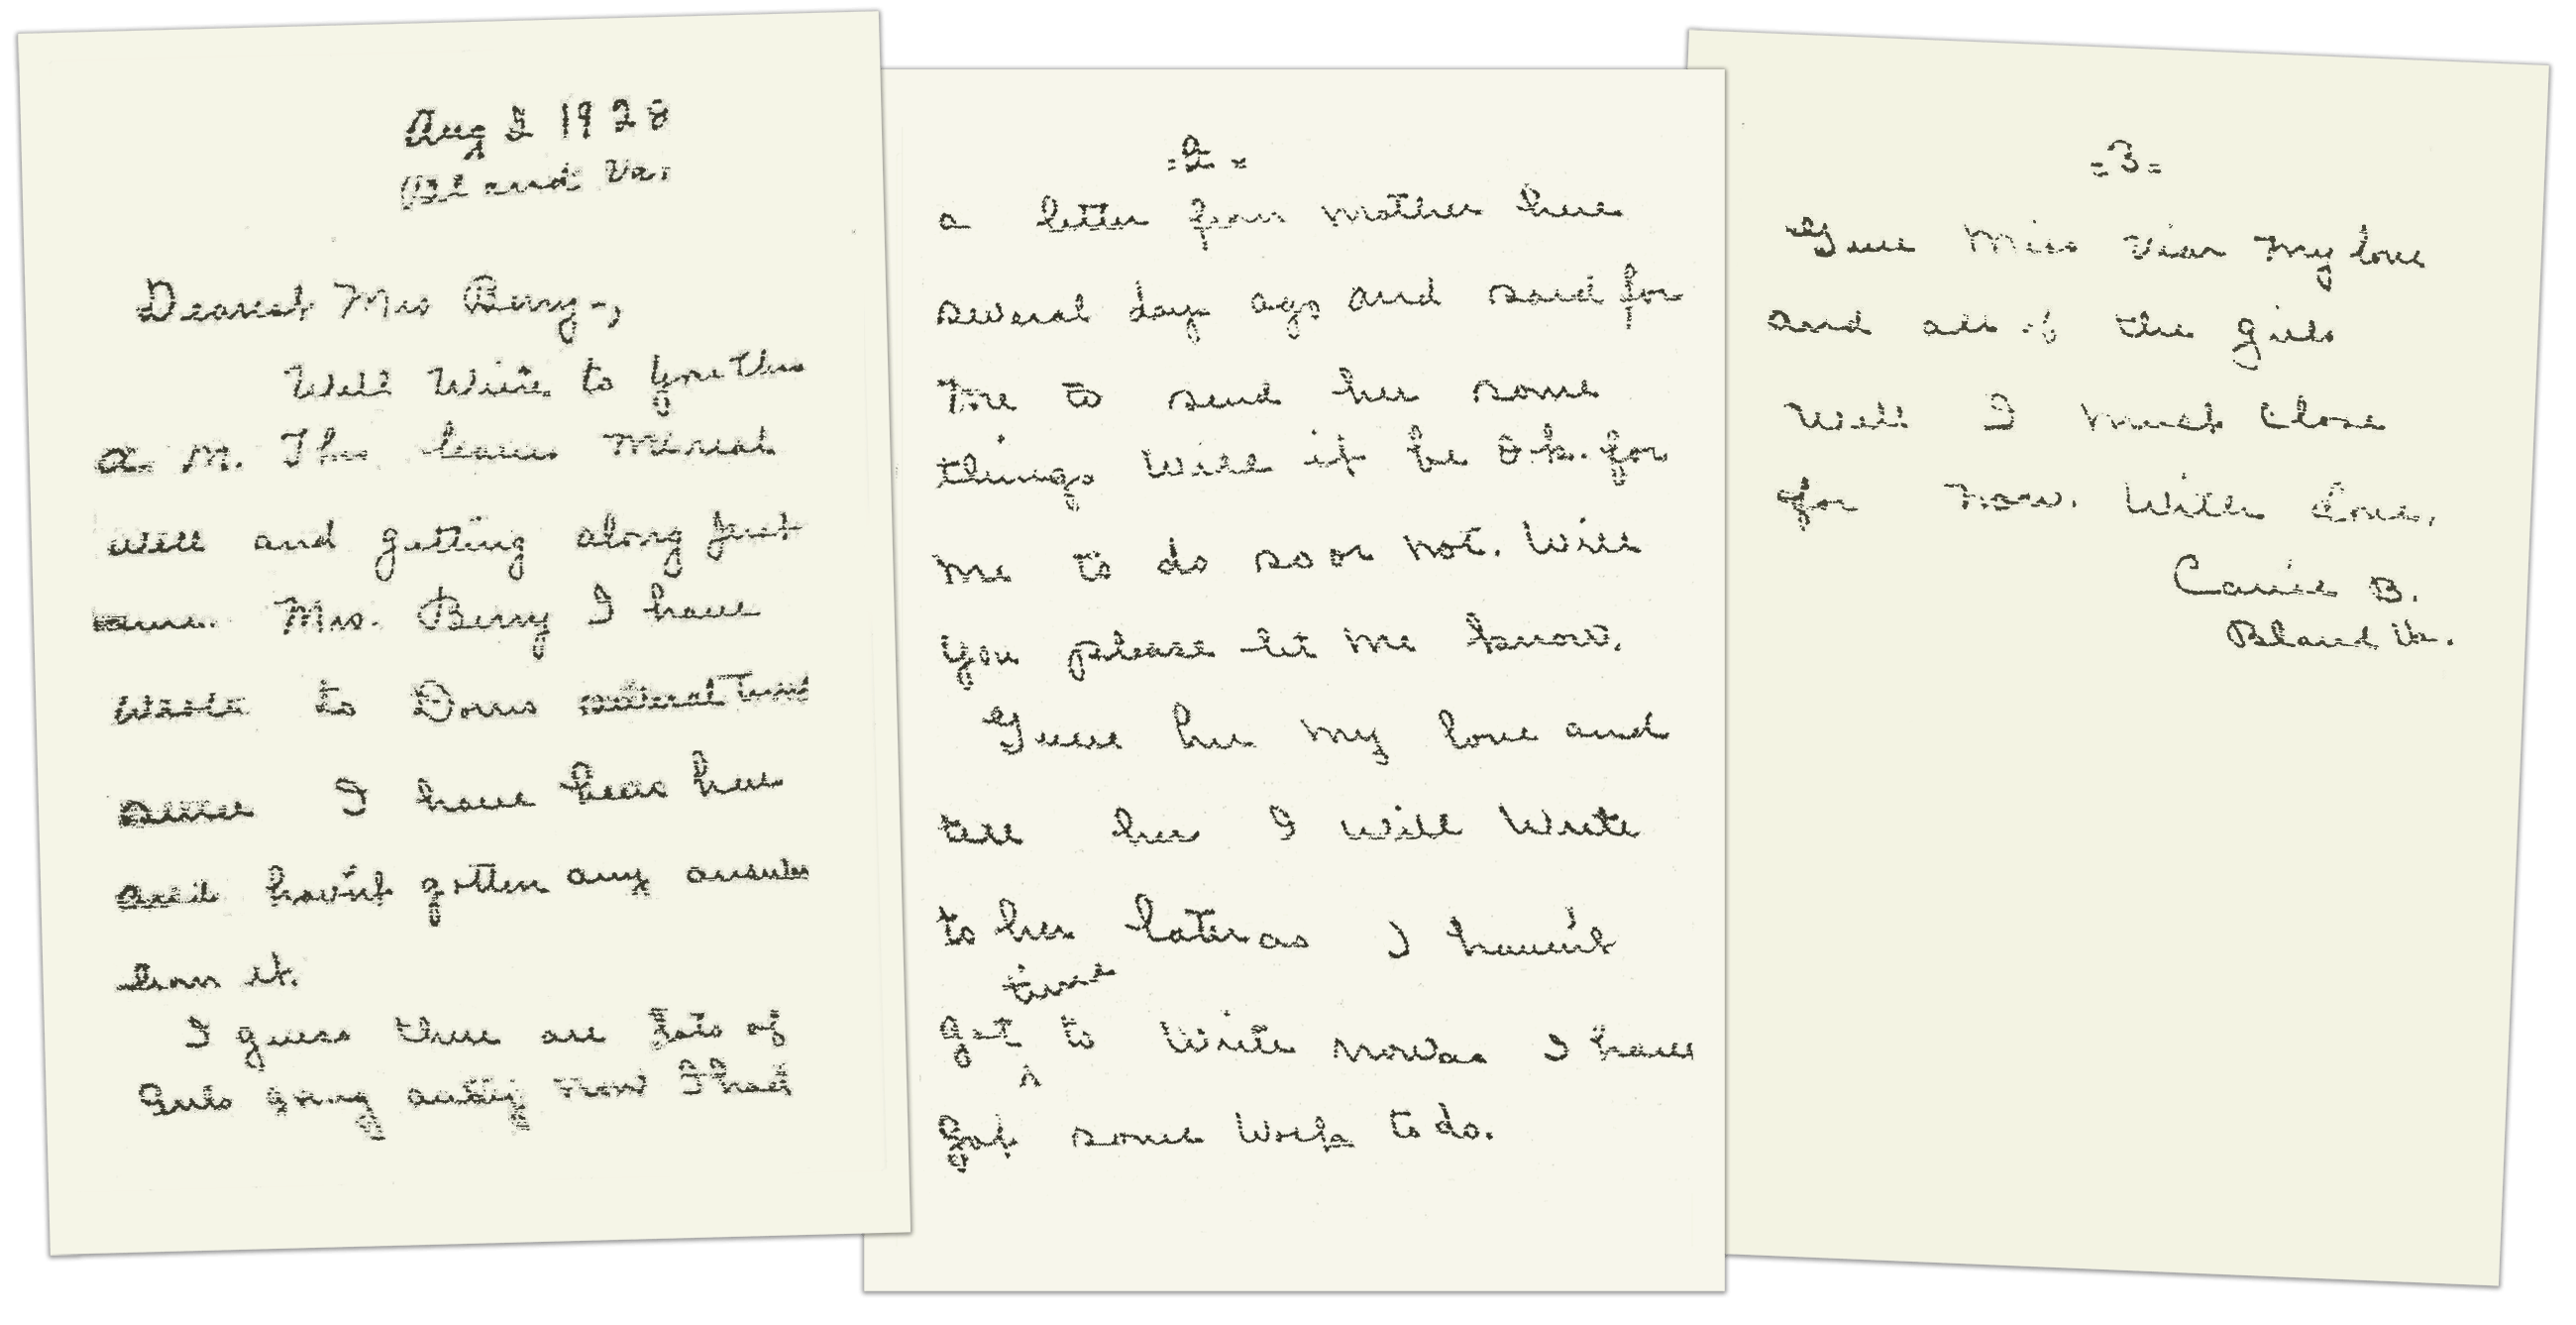 Aug 2 1928
Bland Va.
Dearest Mrs Berry-,
Will Write to you this
a. M. This leaves me real
well and getting along just
Mrs. Berry I have
wrote to Dorris several times
since I have been here
and hav'nt gotten any answer
from it.
I guess there are lots of
Girls going away now I had
-2-
a letter from mother here
several day ago and said for
me to send her some
things Will it be O.k. for
me to do so or not. Will
you please let me know.
Give her my love and
tell her I will write
to her later as I haven't
time
got to Write now as I have
Got some Work to do.
-3-
Give Miss Viar my love
and all of the girls
Well I must close
for now. With Love,
Carrie B.
Bland Va.